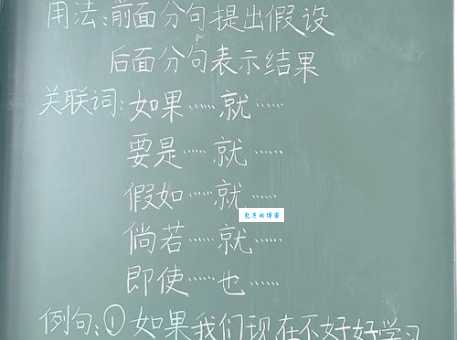 用法:前面分句提出假设
后面分句表示结果
关联词:如果……就……
要是……就……
假如……就……
倘若……就……
即使……也……
例句:①如果我们现在不好好学习